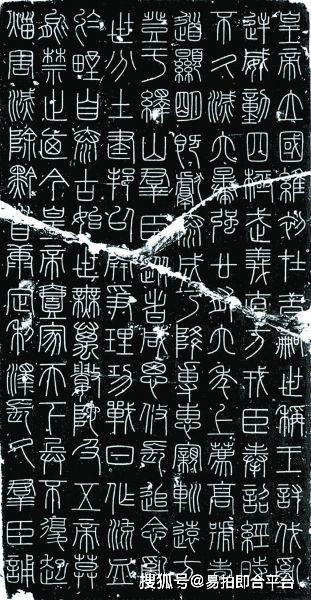 皇帝立國維初在昔嗣世稱王討伐亂
逆威動四極武義直方戎臣奉詔經時
不久滅六暴強廿有六年上薦高號孝
道顯明既獻泰成乃降專惠親巡遠方
登于繹山羣臣從者咸思攸長追念亂
世分土建邦以開爭理功戰日作流血
於野自泰古始世無萬數陀及五帝莫
能禁止廼今皇帝壹家天下兵不復起
災害滅除黔首康定利澤長久羣臣誦
搜狐号@易拍即合平台